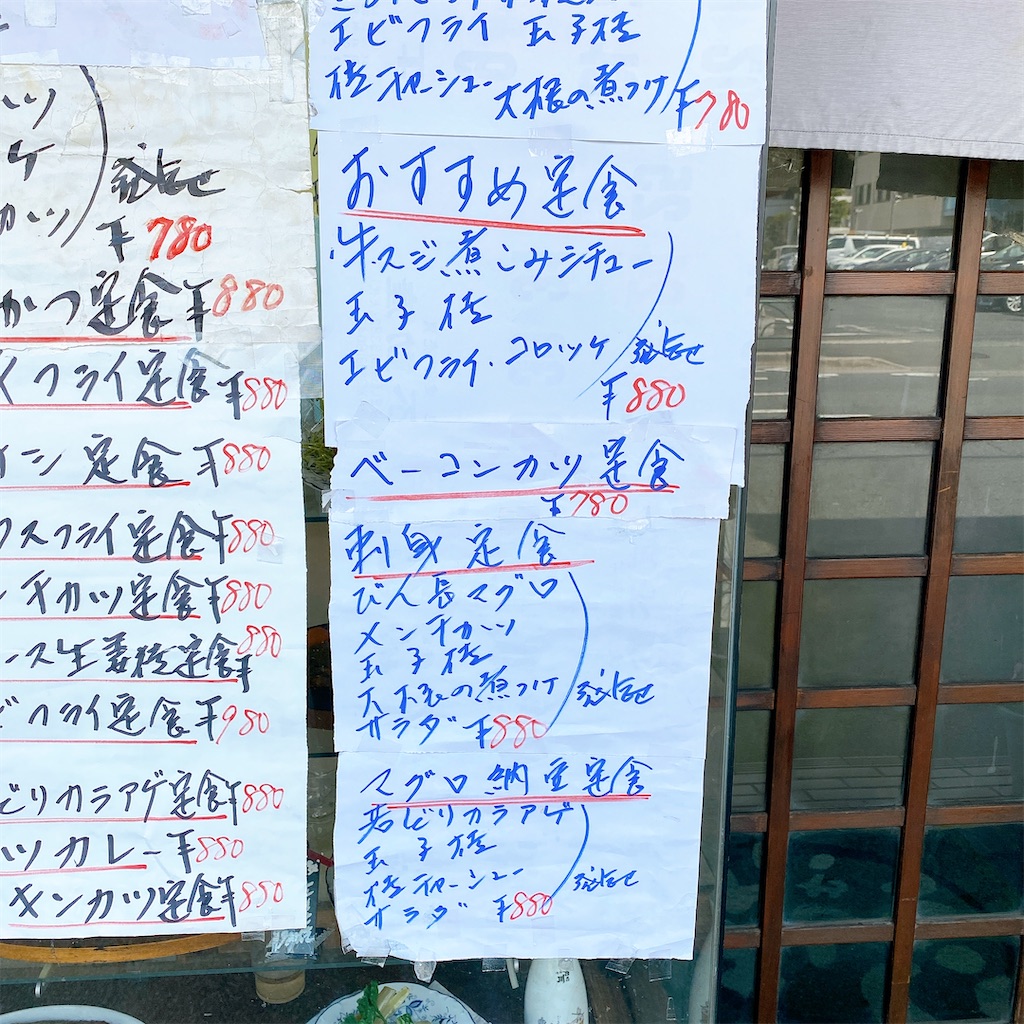 カツ
ケ
カツ
盛合せ
¥780
かつ定食¥880
くフライ定食¥880
イシ定食¥880
クスフライ定食¥880
ンチカツ定食¥880
ース生姜焼定食¥880
ビフライ定食¥980
どりカラアゲ定食¥880
ツカレー¥880
キンカツ定食¥850
エビフライ 玉子焼
焼チャーシュー 大根の煮つけ ¥780
おすすめ定食
牛スジ煮こみシチュー
玉子焼
エビフライ・コロッケ 盛合せ
¥880
ベーコンカツ定食
¥780
刺身定食
びん長マグロ
メンチカツ
玉子焼
大根の煮つけ 盛合せ
サラダ ¥880
マグロ納豆定食
若どりカラアゲ
玉子焼
焼チャーシュー 盛合せ
サラダ ¥880